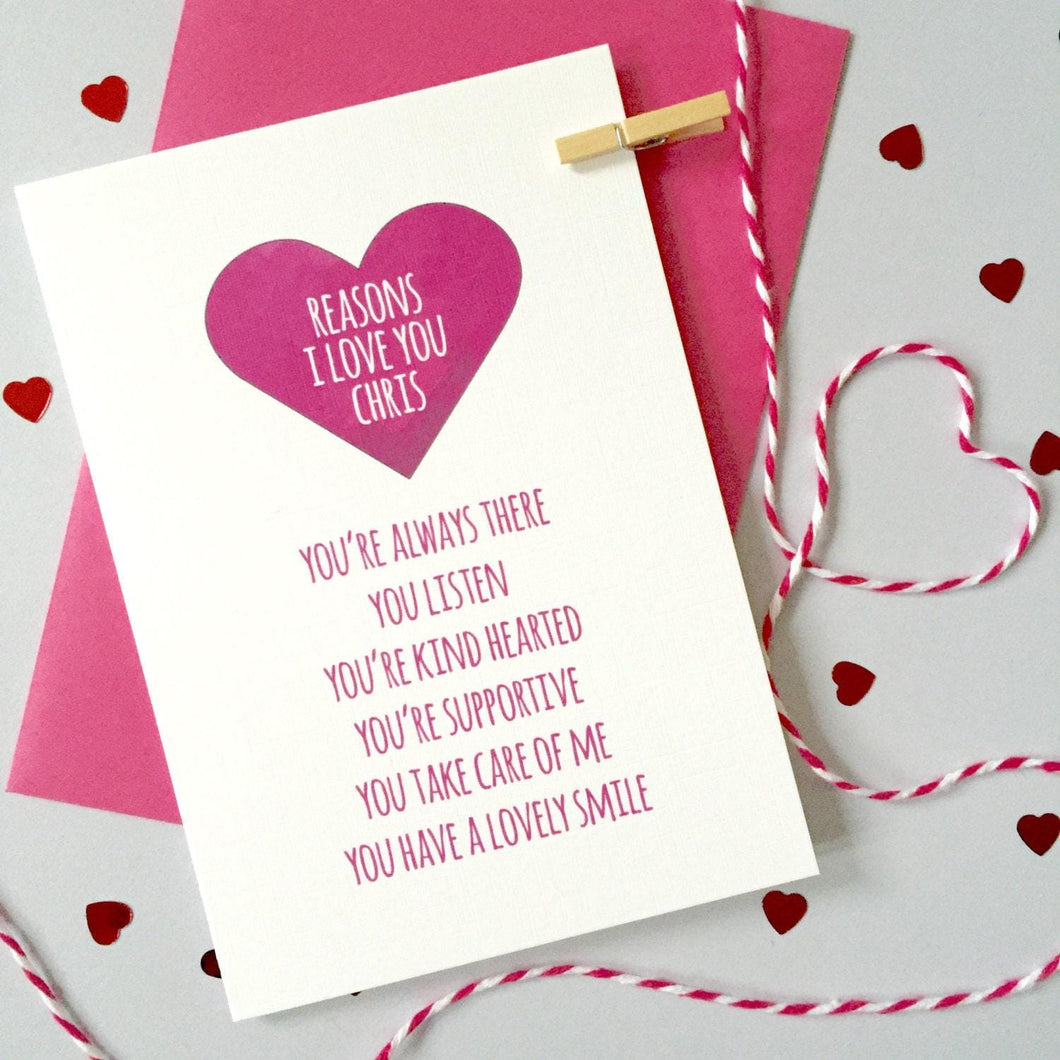 REASONS
I LOVE YOU
CHRIS
YOU'RE ALWAYS THERE
YOU LISTEN
YOU'RE KIND HEARTED
YOU'RE SUPPORTIVE
YOU TAKE CARE OF ME
YOU HAVE A LOVELY SMILE